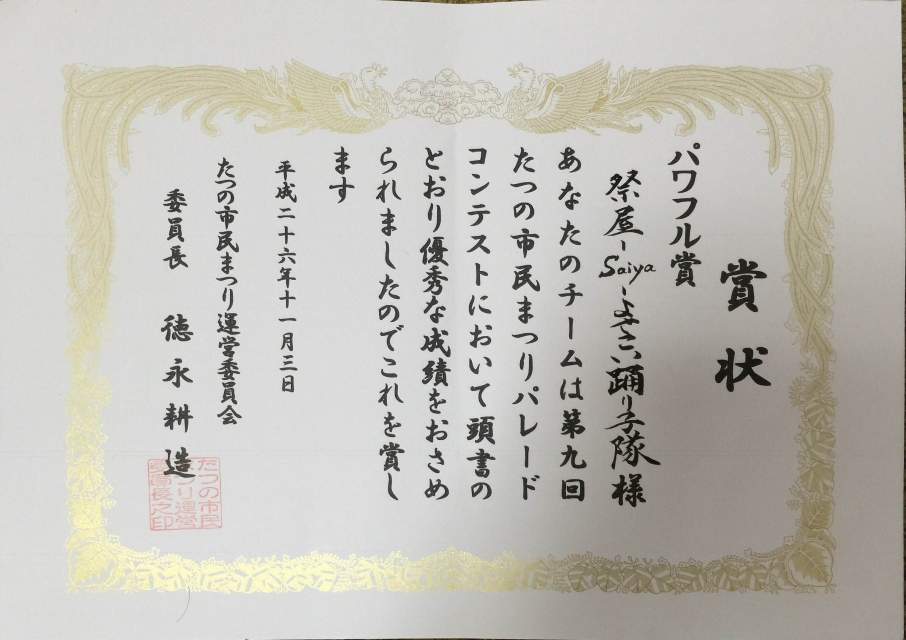 賞状
パワフル賞
祭屋-Saiya-よさこい踊り子隊様
あなたのチームは第九回
たつの市民まつりパレード
コンテストにおいて頭書の
とおり優秀な成績をおさめ
られましたのでこれを賞し
ます
平成二十六年十一月三日
たつの市民まつり運営委員会
委員長 徳永耕造
たつの市民
まつり運営
委員長之印